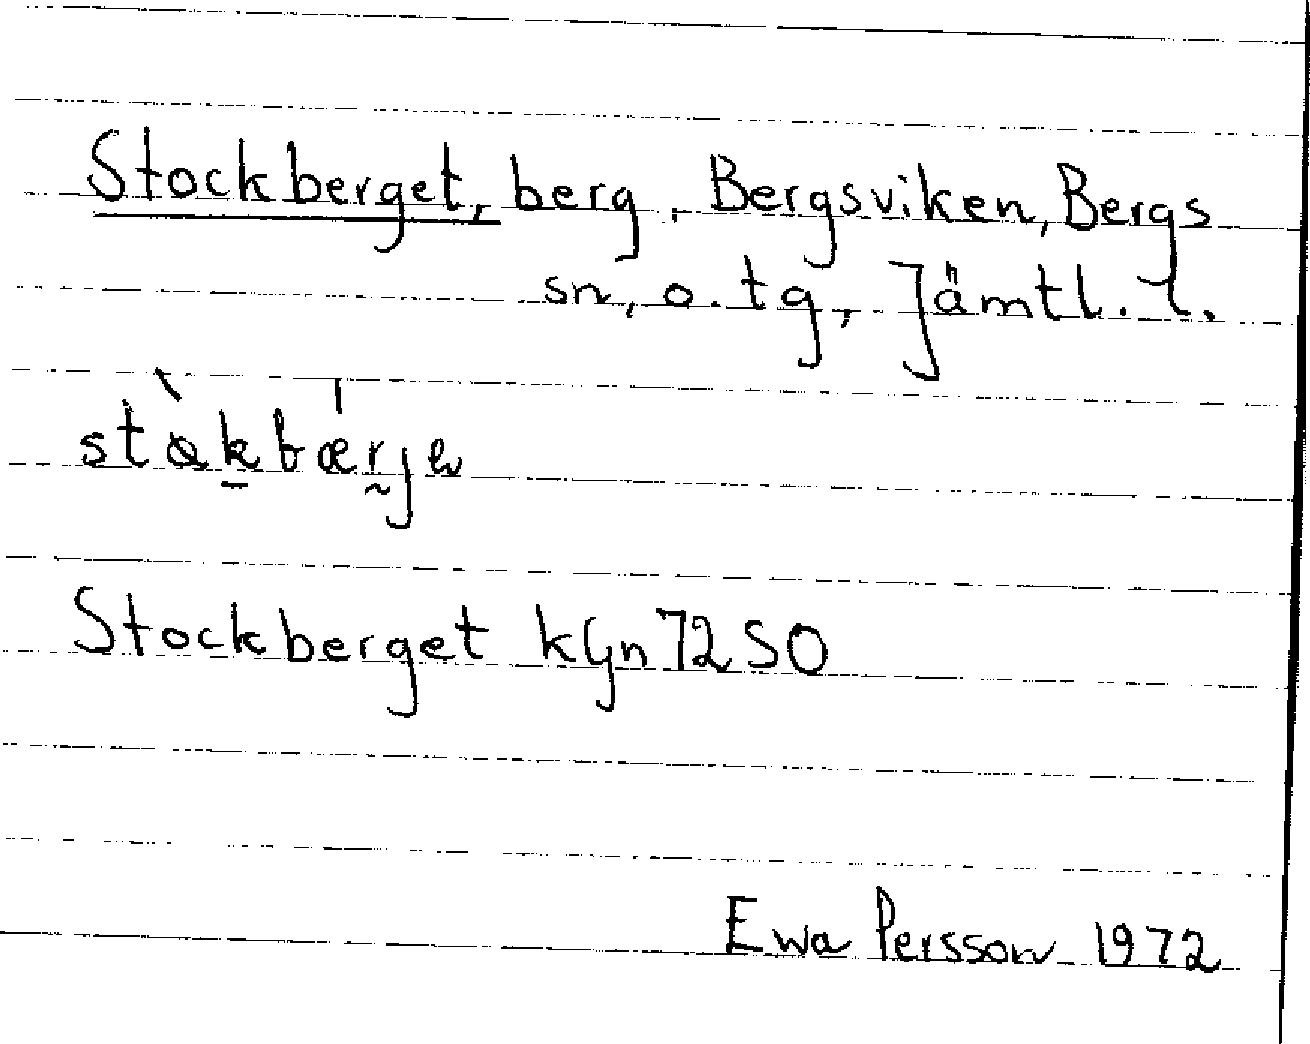 Stockberget, berg, Bergsviken, Bergs
sn, o. tg, Jämtl. l.
stàk̠bǽr̰jə
Stockberget kGn 72 SO
Ewa Persson 1972